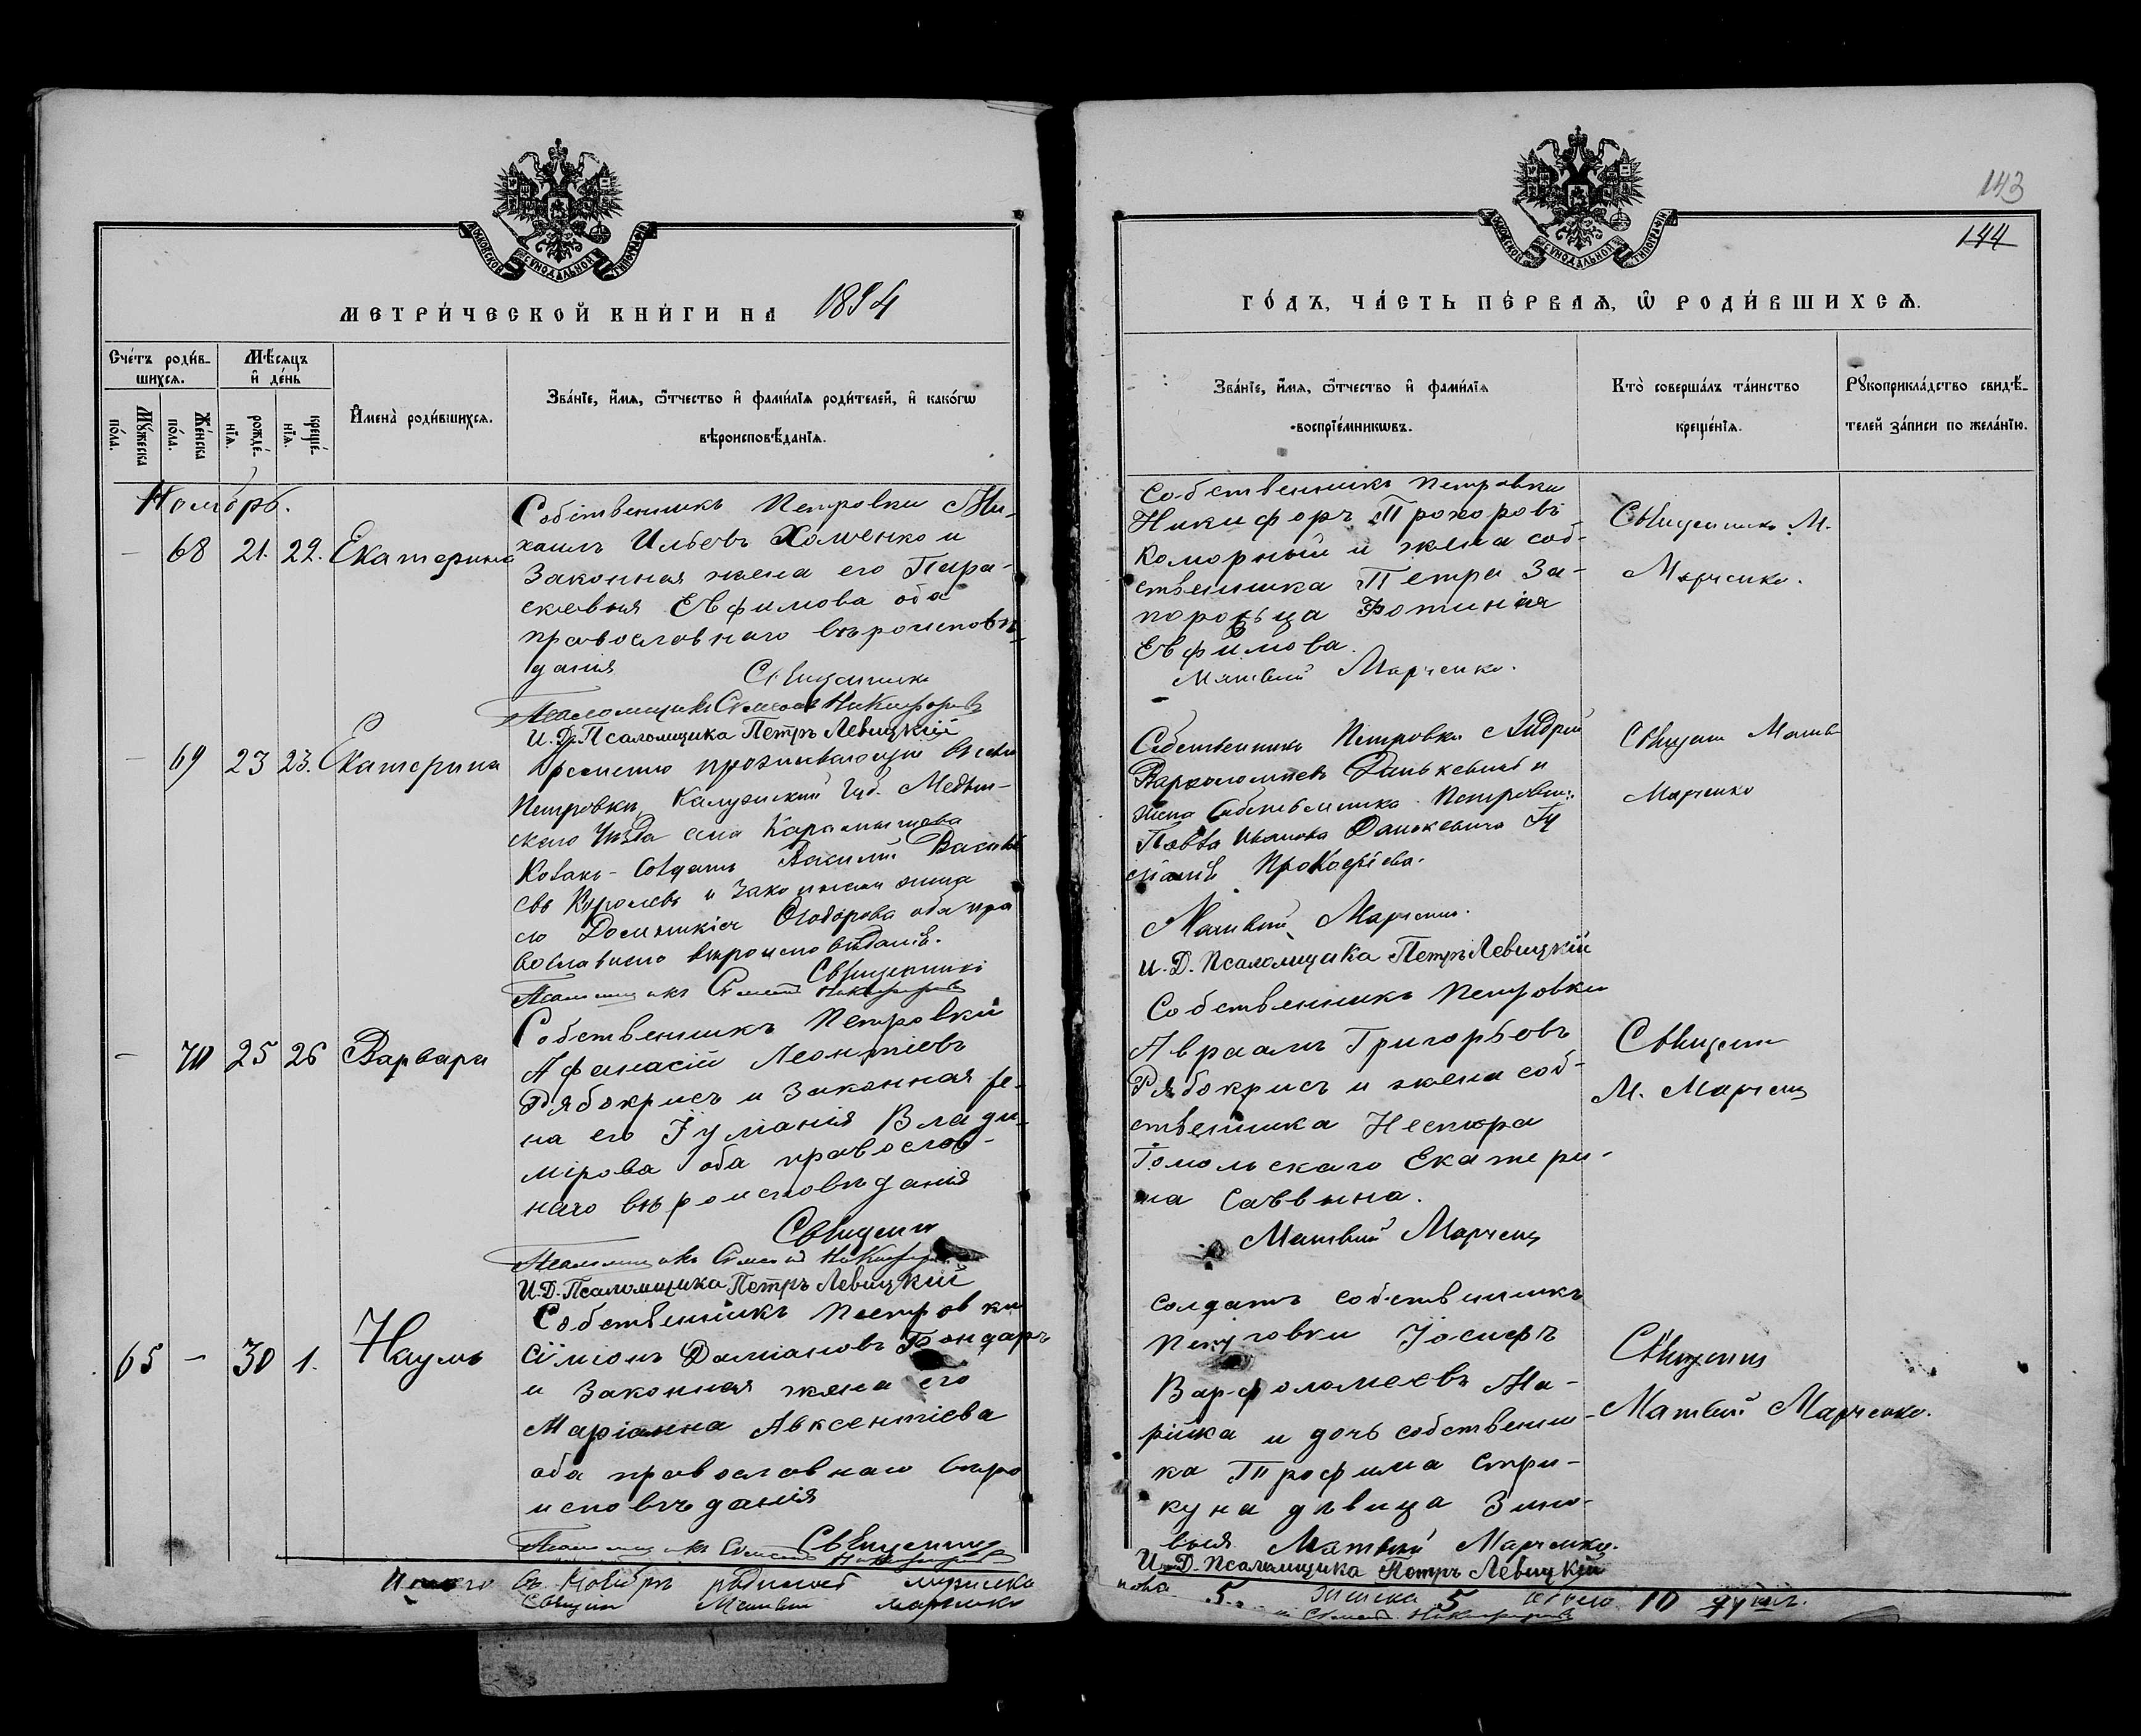 143
144
МОСКОВСКОЙ СУНОДАЛЬНОЙ ТИПОГРАФІИ
МЕТРИ́ЧЕСКОЙ КНИ́ГИ НА 1894
Сче́тъ роди́в-
шихсѧ.
Мѣ́сѧцъ
и҆ де́нь
Мꙋ́жеска
по́ла.
Же́нска
по́ла.
рожде́-
нїѧ.
креще́-
нїѧ.
И҆мена̀ роди́вшихсѧ.
Зва́нїе, и҆́мѧ, ѻ҆́тчество и҆ фами́лїѧ роди́телей, и҆ како́гѡ
вѣроисповѣ́данїѧ.
Ноябрь.
— 68 21. 22. Екатерина
Собственникъ Петровки Ми-
хаилъ Ильевъ Хоменко и
законная жена его Пара-
скевія Евфимова оба
православнаго вѣроисповѣ-
данія
Священникъ
Псаломщикъ Симеонъ Никифоровъ
И. Д. Псаломщика Петръ Левицкій
— 69 23 23. Екатерина
Временно проживающій въ селѣ
Петровкѣ, Калужской Губ. Медын-
скаго Уѣзда села Карамышева
Василій Василь
евъ и законная жена
его Домникія Ѳеодорова оба пра
вославнаго вѣроисповѣданія.
Священникъ
Псаломщикъ Симеонъ Никифоровъ
— 70 25 26 Варвара
Собственникъ Петровки
Афанасій Леонтіевъ
Рябокрисъ и законная же-
на его Іуліанія Влади-
мірова оба православ-
наго вѣроисповѣданія
Священник
Псаломщикъ Симеонъ Никифоровъ
И. Д. Псаломщика Петръ Левицкій
65 — 30 1. Наумъ
Собственникъ Петровки
Сѵмеонъ Даміановъ Бондарь
и законная жена его
Маріанна Авксентіева
оба православнаго вѣро
исповѣданія
Священник
Псаломщикъ Симеонъ Никифоровъ
Итого въ Ноябрѣ родилось мужеска
Священ Матвій Марченко
ГО́ДЪ, ЧА́СТЬ ПЕ́РВАѦ, Ѡ҆ РОДИ́ВШИХСѦ.
Зва́нїе, и҆́мѧ, ѻ҆́тчество и҆ фами́лїѧ
воспрїе́мникѡвъ.
Кто̀ соверша́лъ та́инство
креще́нїѧ.
Рꙋкоприкла́дство свидѣ́-
телей за́писи по жела́нїю.
Собственникъ Петровки
Никифоръ Прохоровъ
Коморный и жена соб-
ственника Петра За-
порожца Фотинія
Евфимова.
Матвій Марченко.
Священникъ М.
Марченко.
Собственникъ Петровки Андрей
Варѳоломеевъ Данькевичъ и
жена Собственника Петровки
Павла Иванова Данькевича Іу
ліанія Прокофіева.
Матвій Марченко.
И. Д. Псаломщика Петръ Левицкій
Священ Матв
Марченко
Собственникъ Петровки
Авраамъ Григорьевъ
Рябокрисъ и жена соб-
ственника Нестора
Томольскаго Екатери-
на Саввина.
Матвій Марченк
Священ
М. Марченк
Солдатъ собственникъ
Петровки Іосифъ
Варфоломеевъ Ма-
рійка и дочь собственни-
ка Трофима Стри-
куна дѣвица Зино-
вія Матвій Марченко.
И. Д. Псаломщика Петръ Левицкій
Священник
Матвій Марченко.
пола 5. женска 5 всего 10 душъ.
Симеонъ Никифоровъ